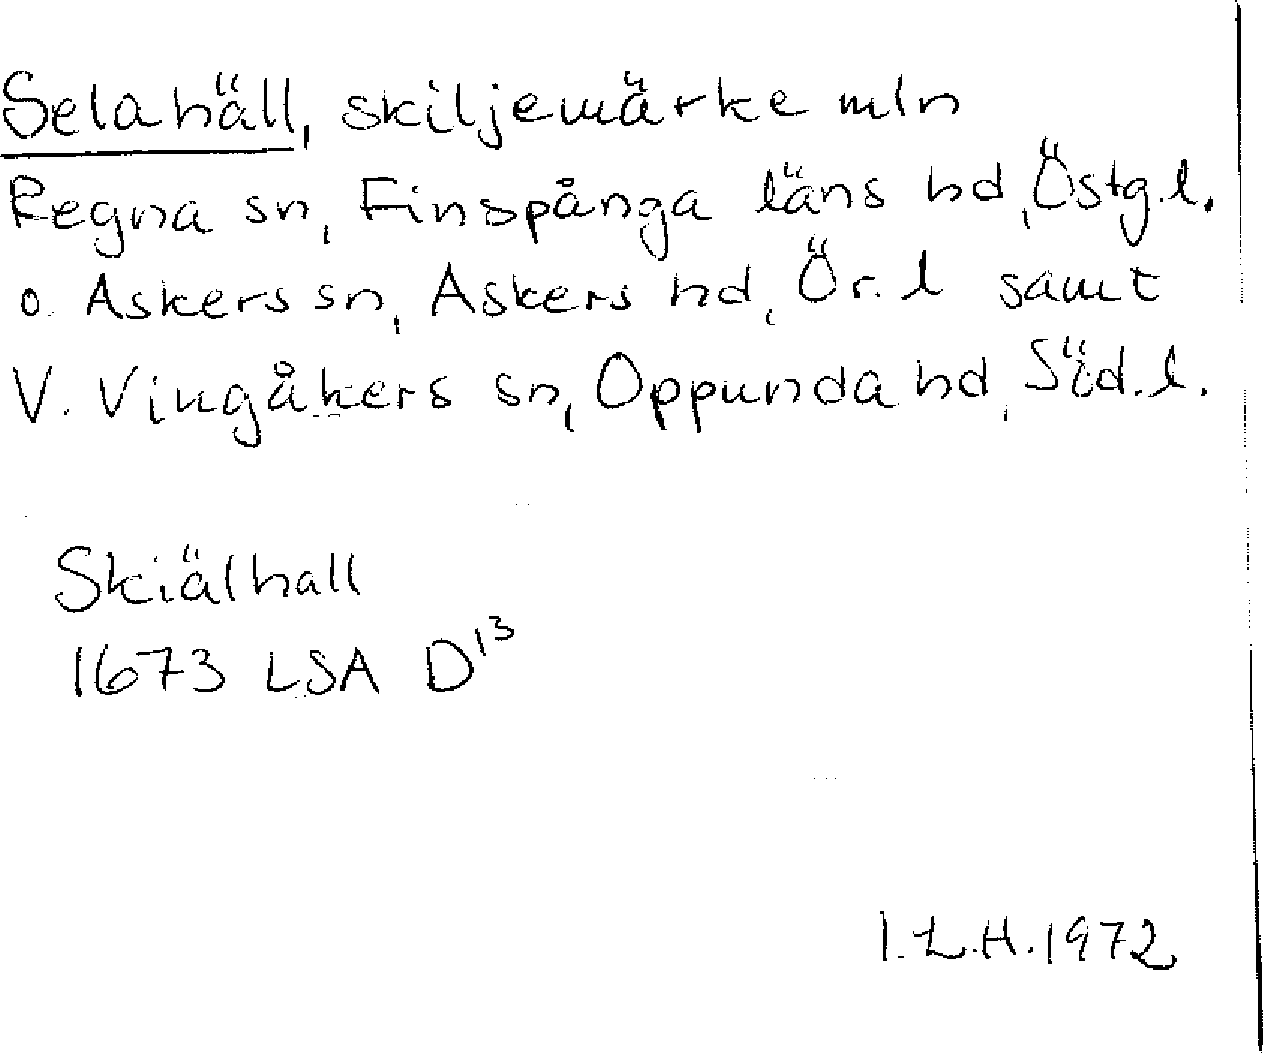 Selahäll, skiljemärke mln
Regna sn, Finspånga läns hd, Östg.l.
o. Askers sn, Askers hd, Ör.l samt
V. Vingåkers sn, Oppunda hd, Söd.l.
Skiälhall
1673 LSA D13
I.L.H. 1972